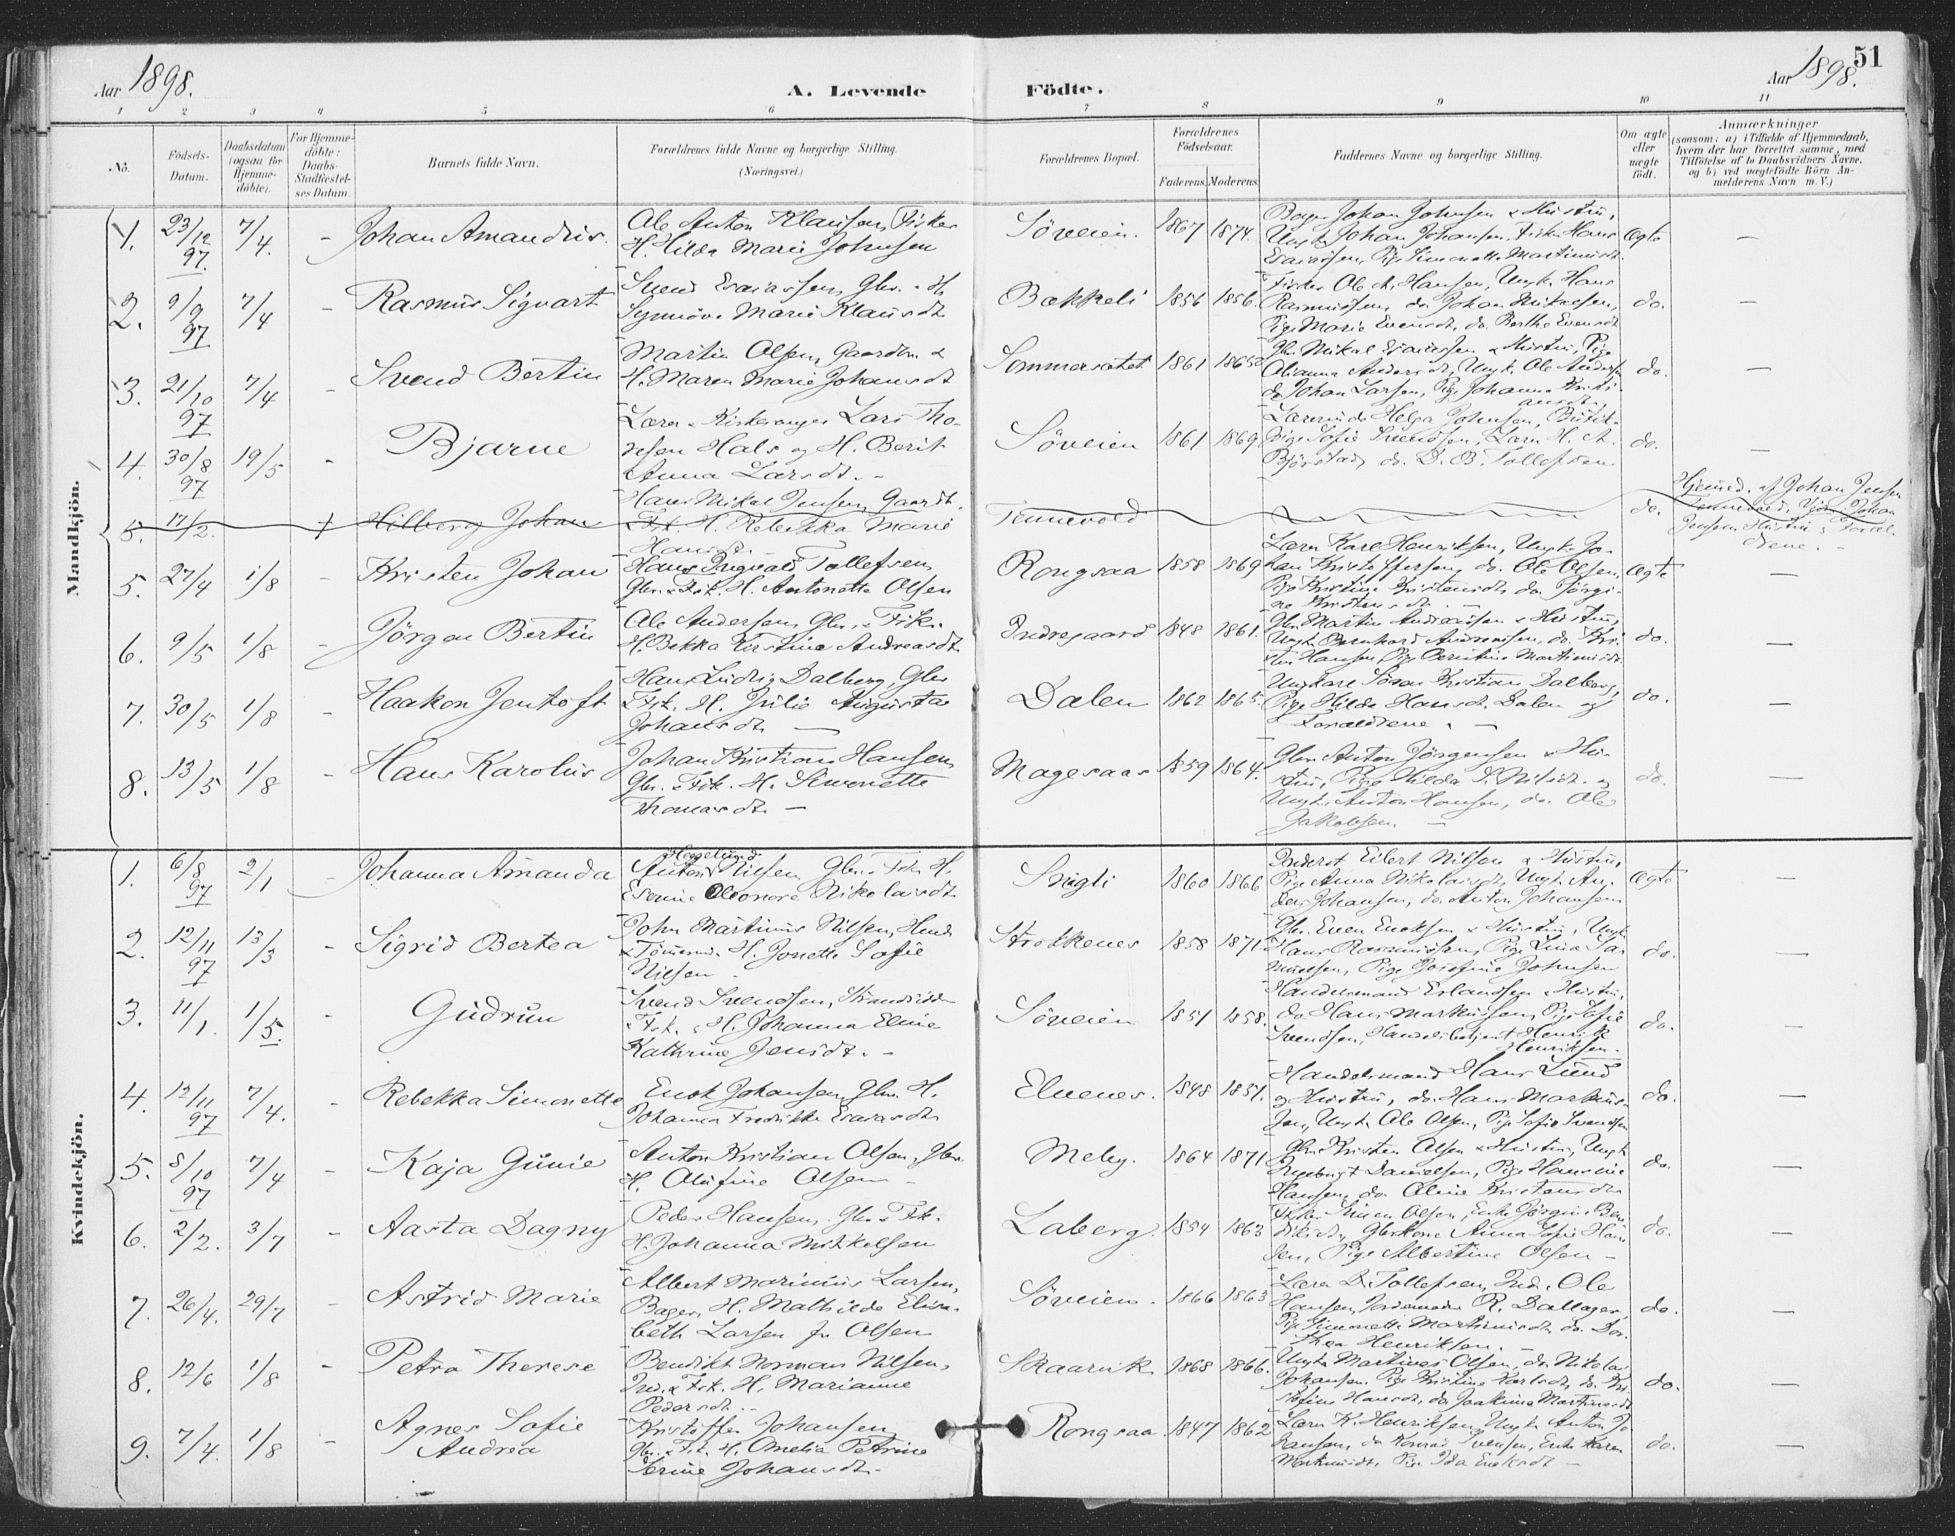 Aar 1898.
A. Levende Födte.
Aar 1898.
51
1 2 3 4 5 6 7 8 9 10 11
No.
Födsels-Datum.
Daabsdatum (ogsaa for Hjemme-döbte).
For Hjemme-döbte: Daabs-Stadfæstel-ses Datum.
Barnets fulde Navn.
Forældrenes fulde Navne og borgerlige Stilling.
(Næringsvei.)
Forældrenes Bopæl.
Forældrenes Födselsaar.
Faderens. Moderens.
Faddernes Navne og borgerlige Stilling.
Om ægte eller uægte födt.
Anmærkninger
(saasom: a) i Tilfælde af Hjemmedaab,
hvem der har forrettet samme, med
Tilföielse af to Daabsvidners Navne.
og b) ved uægtefödte Börn An-
melderens Navn m. V.)
Mandkjön.
1. 23/12 97. 7/4. - Johan Amandus. Ole Anton Klausen, Fisker
H. Hilda Marie Johnsen Söveien. 1867 1874. Johan Johnsen & Hustru,
Ungk. Johan Johansen, Fisker Hans
Esaiasen, Pige Simonette Martinusdt. Ægte -
2. 9/9 97 7/4 - Rasmus Sigvart Svend Esaiassen, Gbr. & H.
Synnöve Marie Klausdt. Bækkeli 1856 1856. Fisker Ole A. Hansen, Ungk. Hans
Rasmussen, do. Johan Mikalsen,
Pige Marie Evensdt. do. Berthe Evensdt. do. -
3. 21/10 97 7/4 - Svend Bertin Martin Olsen, Gaardm. &
H. Maren Marie Johansdt. Sommersætet 1861 1865 Gbr. Mikal Esaiassen & Hustru, Pige
Olianna Andersdt., Ungk. Ole Andersen
do Johan Larsen, Pige Johanna Kristi-
ansdt. do. -
4. 30/8 97 19/5 - Bjarne Lærer & Kirkesanger Lars Tho-
desen Hals og H. Berit
Anna Larsdt. - Söveien 1861 1869. Lærerinde Helga Johnsen, Butik-
pige Sofie Svendsen, Lærer H. A.
Björstad, do. D. B. Tollefsen do. -
5. 17/2. + Hilberg Johan Hans Mikal Jensen, Gaardb.
Fsk. H. Rebekka Marie
Hansdt. Tennevold do. Hjemmed. af Johan Jensen
Tennevold, Johan
Jensens Hustru & Foræl-
drene. -
5. 27/4 1/8 - Kristen Johan Hans Ingvald Tollefsen,
Gbr. & Fsk. H. Antonette Olsen Rongsaa 1858 1869 Lærer Karl Henriksen, Ungk. Jo-
han Kristoffersen, do. Ole Olsen,
Pige Kristine Kristensdt. do. Jörgi-
ne Kristensdt. - Ægte -
6. 9/5 1/8 - Jörgen Bertin Ole Andersen, Gbr. & Fsk.
H. Bekka Kirstine Andreasdt. Indregaard 1848 1861. Gbr. Martin Andreassen & Hustru,
Ungk. Bernhard Andreassen, do. Kri-
sten Hansen, Pige Berntine Martinusdt. do. -
7. 30/5 1/8 - Haakon Jentoft Hans Ludvig Dalberg, Gbr.
& Fsk. H. Julie Augusta
Johansdt. - Dalen 1862 1865. Ungkarl Sören Kristian Dalberg,
Pige Hilda Hansdt. Dalen og
Forældrene. - do. -
8. 13/5 1/8 - Hans Karolus Johan Kristian Hansen,
Gbr. & Fsk. H. Simonette
Thomasdt. - Magesaas 1859 1864. Gbr. Anton Jörgensen & Hu-
stru, Pige Hilda S. Nilsdt. og
Ungk. Anton Hansen, do. Ole
Jakobsen. - do. -
Kvindekjön.
1. 6/8 97 2/1 - Johanna Amanda Anton Nilsen Gbr. & Fsk. H.
Eleonore Nikolaisdt. Snigli 1860 1866 Inderst Eilert Nilsen & Hustru,
Pige Anna Nikolaisdt. Ungk. An-
ders Johansen, do. Anton Johansen Ægte -
2. 12/11 97 13/3 - Sigrid Bertea John Martinus Nilsen,
& H. Jonette Sofie
Nilsen - Strokkenes 1858 1871. Gbr. Even Enoksen & Hustru, Ungk.
Hans Rasmussen, Pige Lina Sa-
muelsen, Pige Josefine Johnsen do. -
3. 11/1. 1/5. - Gudrun Svend Svendsen, Strandsidder
& Fsk. & H. Johanna Eline
Kathrine Jensdt. - Söveien 1851 1858. Handelsmand Erlandsen & Hustru,
do Hans Markussen, Pige Sofie
Svendsen, Handelsbetjent Henrik
Henriksen. do. -
4. 12/11 97 7/4. - Rebekka Simonette Enok Johansen, Gbr. H.
Johanna Fredrikke Esaiasdt. Elvenes. 1848 1857. Handelsmand Hans Lund
og Hustru, do. Hans Markus-
sen, Ungk. Ole Olsen, Pige Sofie Svendsen do. -
5. 8/10 97 7/4 - Kaja Gunie Anton Kristian Olsen, Gbr.
H. Olufine Olsen - Meby. 1864 1871 Gbr. Kristen Olsen & Hustru, Ungk.
Ingebrigt Danielsen, Pige Hansine
Hansen, do. Oline Kristensdt. do. -
6. 2/2. 3/7 - Aasta Dagny Peder Hansen, Gbr. & Fsk.
H. Johanna Mikkelsen Laberg. 1854 1863 Fisker Simon Olsen, Enke Jörgine Ben-
diksdt., Gbrkone Anna Sofie Han-
sen, Pige Albertine Olsen - do. -
7. 26/4. 29/7 - Astrid Marie Albert Marinius Larsen,
Bager, H. Mathilde Elisa-
beth Larsen f. Olsen Söveien. 1866 1863 Lærer D. Tollefsen, Ind. Ole
Hansen, Jordemoder R. Dallager,
Pige Simonette Martinusdt. do. Doro-
thea Henriksen. - do. -
8. 12/6 1/8 - Petra Therese Bendikt Norman Nilsen,
Ind. & Fsk. H. Marianne
Pedersdt. - Skaarvik 1868 1866. Ungk. Martinus Olsen, do. Nikolai
Johansen, Pige Kristine Karlsdt. do. Kri-
stine Hansdt. do. Joakima Martinusdt. do. -
9. 7/4. 1/8 - Agnes Sofie
Andrea Kristoffer Johansen,
Gbr. & Fsk. H. Amelia Petrine
Serine Johansdt. - Rongsaa. 1847 1862 Lærer K. Henriksen, Ungk. Anton Jo-
hansen, do Konrad Svensen, Enke Karen
Martinusdt. Pige Ida Enoksdt. - do. -